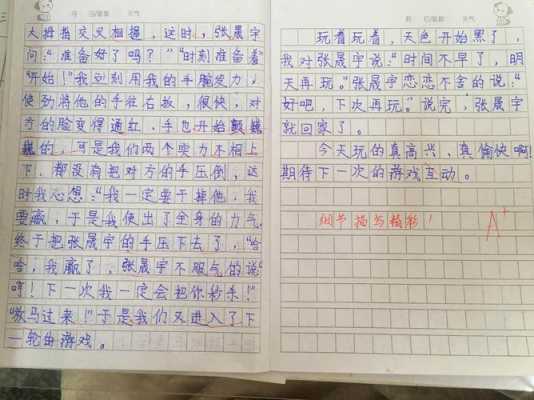 月 日/星期 天气
大拇指交叉相握，这时，张晨宇
问:“准备好了吗？”“时刻准备着”
“开始！”我立刻用我的手腕发力，
使劲将他的手往右扳，很快，对
方的脸变得通红，手也开始颤巍
巍的，可是我们两个实力不相上
下，都没有把对方的手压倒，这
时我心想:“我一定要干掉他，我
要赢，于是我使出了全身的力气，
终于把张晨宇的手压下去了，“哈
哈，我赢了，张晨宇不服气的说“
哼！下一次我一定会把你秒杀！”
“放马过来！”于是我们又进入了下
一轮由游戏。
月 日/星期 天气
玩着玩着，天色开始黑了，
我对张晨宇说:“时间不早了，明
天再玩。”张晨宇恋恋不舍的说:“
好吧，下次再玩。”说完，张晨宇
就回家了。
今天玩的真高兴，真愉快啊！
期待下一次的游戏互动。
细节描写精彩！
A+